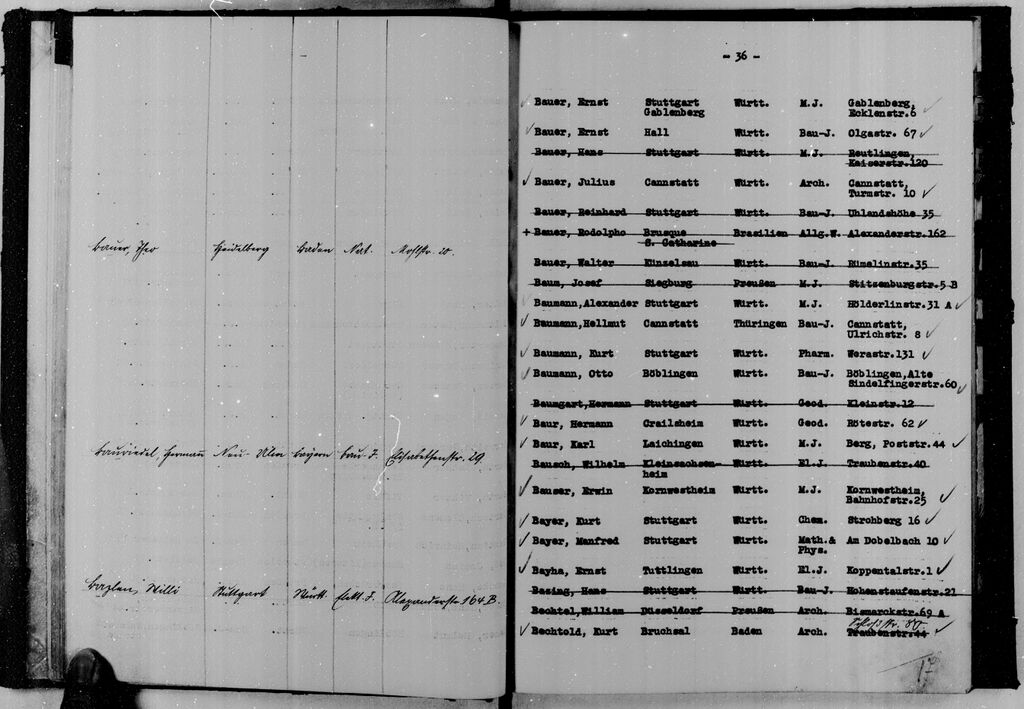 Bauer, Theo Heidelberg Baden Nat. Moltkestr. 10.
Bauriedel, Hermann Neu-Ulm Bayern Bau-J. Elisabethenstr. 29.
Bazlen, Willi Stuttgart Württ. Elekt. J. Alexanderstr. 164 B.
- 36 -
Bauer, Ernst Stuttgart Württ. M.J. Gablenberg,
Gablenberg Ecklenstr.6
Bauer, Ernst Hall Württ. Bau-J. Olgastr. 67
Bauer, Hans Stuttgart Württ. M.J. Reutlingen,
Kaiserstr.120
Bauer, Julius Cannstatt Württ. Arch. Cannstatt,
Turmstr. 10
Bauer, Reinhard Stuttgart Württ. Bau-J. Uhlandshöhe 35
+ Bauer, Rodolpho Brusque Brasilien Allg.W. Alexanderstr.162
S. Catharine
Bauer, Walter Künzelsau Württ. Bau-J. Rümelinstr.35
Baum, Josef Siegburg Preußen M.J. Stitzenburgstr.5 B
Baumann,Alexander Stuttgart Württ. M.J. Hölderlinstr.31 A
Baumann,Hellmut Cannstatt Thüringen Bau-J. Cannstatt,
Ulrichstr. 8
Baumann, Kurt Stuttgart Württ. Pharm. Werastr.131
Baumann, Otto Böblingen Württ. Bau-J. Böblingen,Alte
Sindelfingerstr.60
Baumgart,Hermann Stuttgart Württ. Geod. Kleinstr.12
Baur, Hermann Crailsheim Württ. Geod. Rötestr. 62
Baur, Karl Laichingen Württ. M.J. Berg, Poststr.44
Bausch, Wilhelm Kleinsachsen- Württ. El.J. Traubenstr.40
heim
Bauser, Erwin Kornwestheim Württ. M.J. Kornwestheim,
Bahnhofstr.25
Bayer, Kurt Stuttgart Württ. Chem. Strohberg 16
Bayer, Manfred Stuttgart Württ. Math.& Am Dobelbach 10
Phys.
Bayha, Ernst Tuttlingen Württ. El.J. Koppentalstr.1
Basing, Hans Stuttgart Württ. Bau-J. Hohenstaufenstr.21
Bechtel,William Düsseldorf Preußen Arch. Bismarckstr.69 A
Schloßstr. 80
Bechtold, Kurt Bruchsal Baden Arch. Traubenstr.44
17